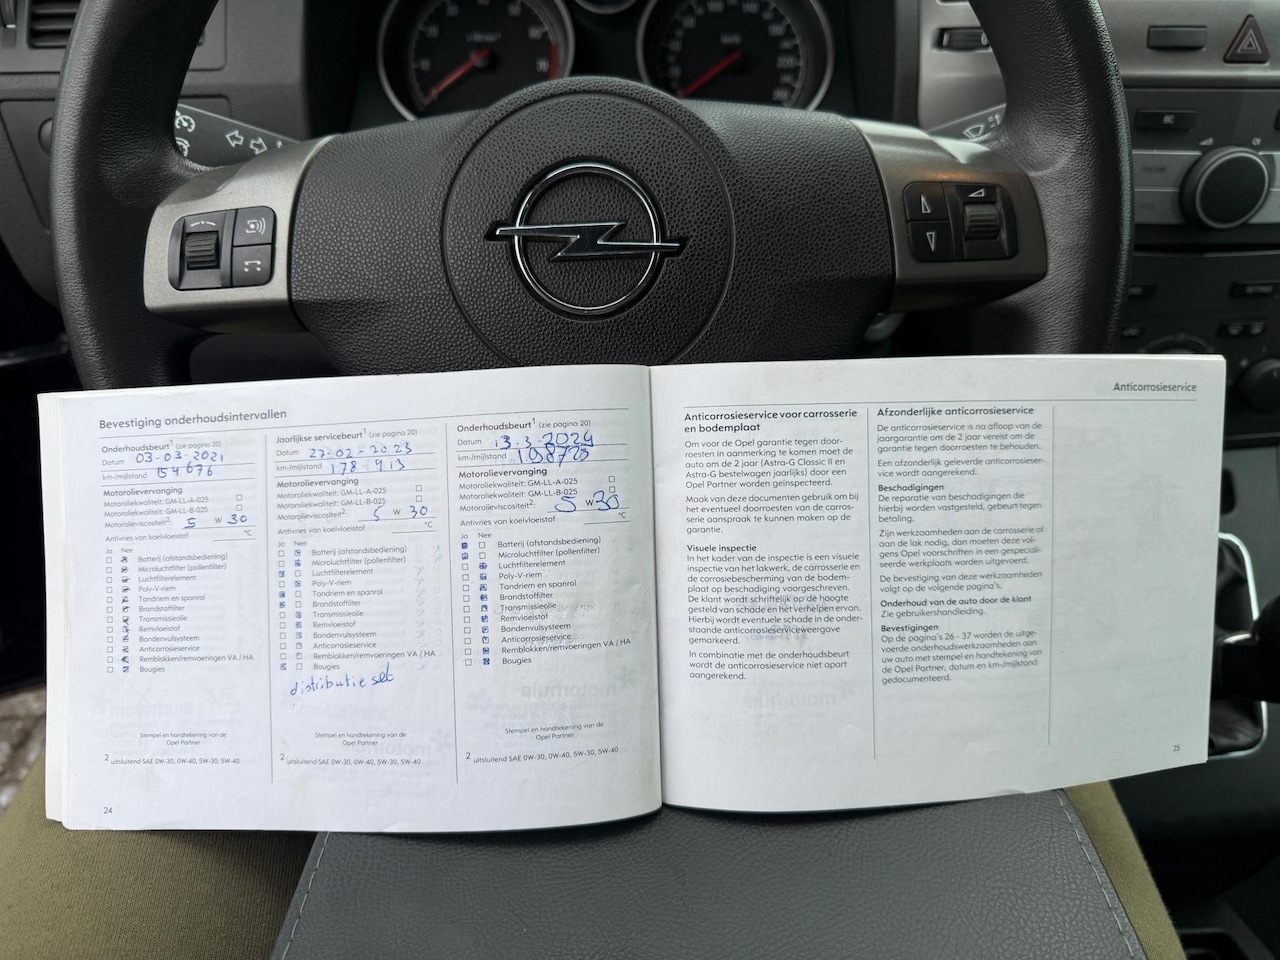 Bevestiging onderhoudsintervallen
Onderhoudsbeurt¹ (zie pagina 20)
Datum 03-03-2021
km-/mijlstand 154676
Motorolievervanging
Motoroliekwaliteit: GM-LL-A-025
GM-LL-B-025
Motorolieviscositeit²: 5 W 30
Antivries van koelvloeistof °C
Ja Nee
Batterij (afstandsbediening)
Microluchtfilter (pollenfilter)
Luchtfilterelement
Poly-V-riem
Tandriem en spanrol
Brandstoffilter
Transmissieolie
Remvloeistof
Bandenvulsysteem
Anticorrosieservice
Remblokken/remvoeringen VA / HA
Bougies
Stempel en handtekening van de
Opel Partner
2 uitsluitend SAE 0W-30, 0W-40, 5W-30, 5W-40
24
Jaarlijkse servicebeurt¹ (zie pagina 20)
Datum 27-02-2023
km-/mijlstand 178-913
Motorolievervanging
Motoroliekwaliteit: GM-LL-A-025
GM-LL-B-025
Motorolieviscositeit²: 5 W 30
Antivries van koelvloeistof °C
Ja Nee
Batterij (afstandsbediening)
Microluchtfilter (pollenfilter)
Luchtfilterelement
Poly-V-riem
Tandriem en spanrol
Brandstoffilter
Transmissieolie
Remvloeistof
Bandenvulsysteem
Anticorrosieservice
Remblokken/remvoeringen VA / HA
Bougies
distributie set
Stempel en handtekening van de
Opel Partner
2 uitsluitend SAE 0W-30, 0W-40, 5W-30, 5W-40
Onderhoudsbeurt¹ (zie pagina 20)
Datum 13-3-2024
km-/mijlstand
Motorolievervanging
Motoroliekwaliteit: GM-LL-A-025
GM-LL-B-025
Motorolieviscositeit²: 5 W 30
Antivries van koelvloeistof °C
Ja Nee
Batterij (afstandsbediening)
Microluchtfilter (pollenfilter)
Luchtfilterelement
Poly-V-riem
Tandriem en spanrol
Brandstoffilter
Transmissieolie
Remvloeistof
Bandenvulsysteem
Anticorrosieservice
Remblokken/remvoeringen VA / HA
Bougies
Stempel en handtekening van de
Opel Partner
2 uitsluitend SAE 0W-30, 0W-40, 5W-30, 5W-40
Anticorrosieservice
Anticorrosieservice voor carrosserie
en bodemplaat
Om voor de Opel garantie tegen door-
roesten in aanmerking te komen moet de
auto om de 2 jaar (Astra-G Classic II en
Astra-G bestelwagen jaarlijks) door een
Opel Partner worden geïnspecteerd.
Maak van deze documenten gebruik om bij
het eventueel doorroesten van de carros-
serie aanspraak te kunnen maken op de
garantie.
Visuele inspectie
In het kader van de inspectie is een visuele
inspectie van het lakwerk, de carrosserie en
de corrosiebescherming van de bodem-
plaat op beschadiging voorgeschreven.
De klant wordt schriftelijk op de hoogte
gesteld van schade en het verhelpen ervan.
Hierbij wordt eventuele schade in de onder-
staande anticorrosieserviceweergave
gemarkeerd.
In combinatie met de onderhoudsbeurt
wordt de anticorrosieservice niet apart
aangerekend.
Afzonderlijke anticorrosieservice
De anticorrosieservice is na afloop van de
jaargarantie om de 2 jaar vereist om de
garantie tegen doorroesten te behouden.
Een afzonderlijk geleverde anticorrosieser-
vice wordt aangerekend.
Beschadigingen
De reparatie van beschadigingen die
hierbij worden vastgesteld, gebeurt tegen
betaling.
Zijn werkzaamheden aan de carrosserie of
aan de lak nodig, dan moeten deze vol-
gens Opel voorschriften in een gespeciali-
seerde werkplaats worden uitgevoerd.
De bevestiging van deze werkzaamheden
volgt op de volgende pagina's.
Onderhoud van de auto door de klant
Zie gebruikershandleiding.
Bevestigingen
Op de pagina's 26 - 37 worden de uitge-
voerde onderhoudswerkzaamheden aan
uw auto met stempel en handtekening van
de Opel Partner, datum en km-/mijlstand
gedocumenteerd.
25